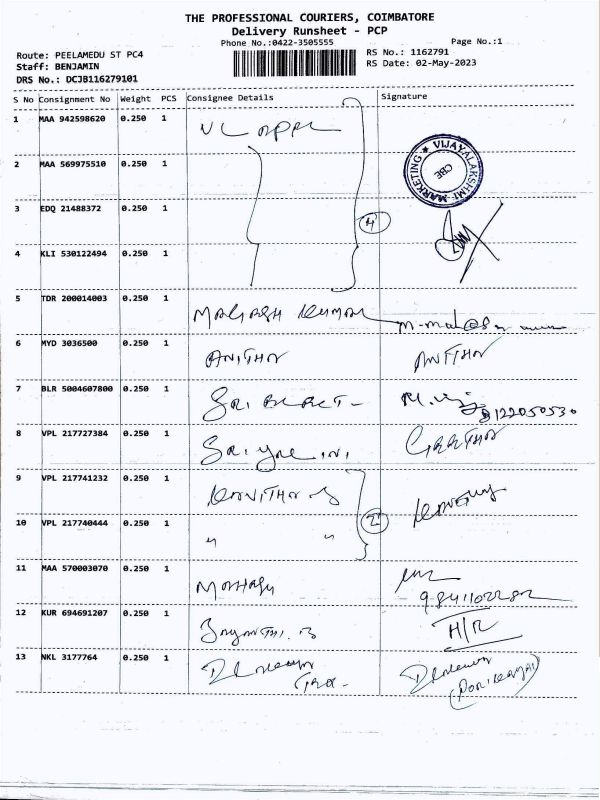 THE PROFESSIONAL COURIERS, COIMBATORE
Delivery Runsheet - PCP
Phone No.:0422-3505555 Page No.:1
Route: PEELAMEDU ST PC4 RS No.: 1162791
Staff: BENJAMIN RS Date: 02-May-2023
DRS No.: DCJB116279101
S No Consignment No Weight PCS Consignee Details Signature
1 MAA 942598620 0.250 1
VIJAYALAKSHMI MARKETING CBE
2 MAA 569975510 0.250 1
3 EDQ 21488372 0.250 1
4
4 KLI 530122494 0.250 1
5 TDR 200014003 0.250 1 MAHASH KUMAR
6 MYD 3036500 0.250 1 ANITHA ANITHA
7 BLR 5004607800 0.250 1 SRI
8122050530
8 VPL 217727384 0.250 1 SRI GEETHA
9 VPL 217741232 0.250 1 KAVITHA
2
10 VPL 217740444 0.250 1 " "
11 MAA 570003070 0.250 1
9841102282
12 KUR 694691207 0.250 1 H/R
13 NKL 3177764 0.250 1